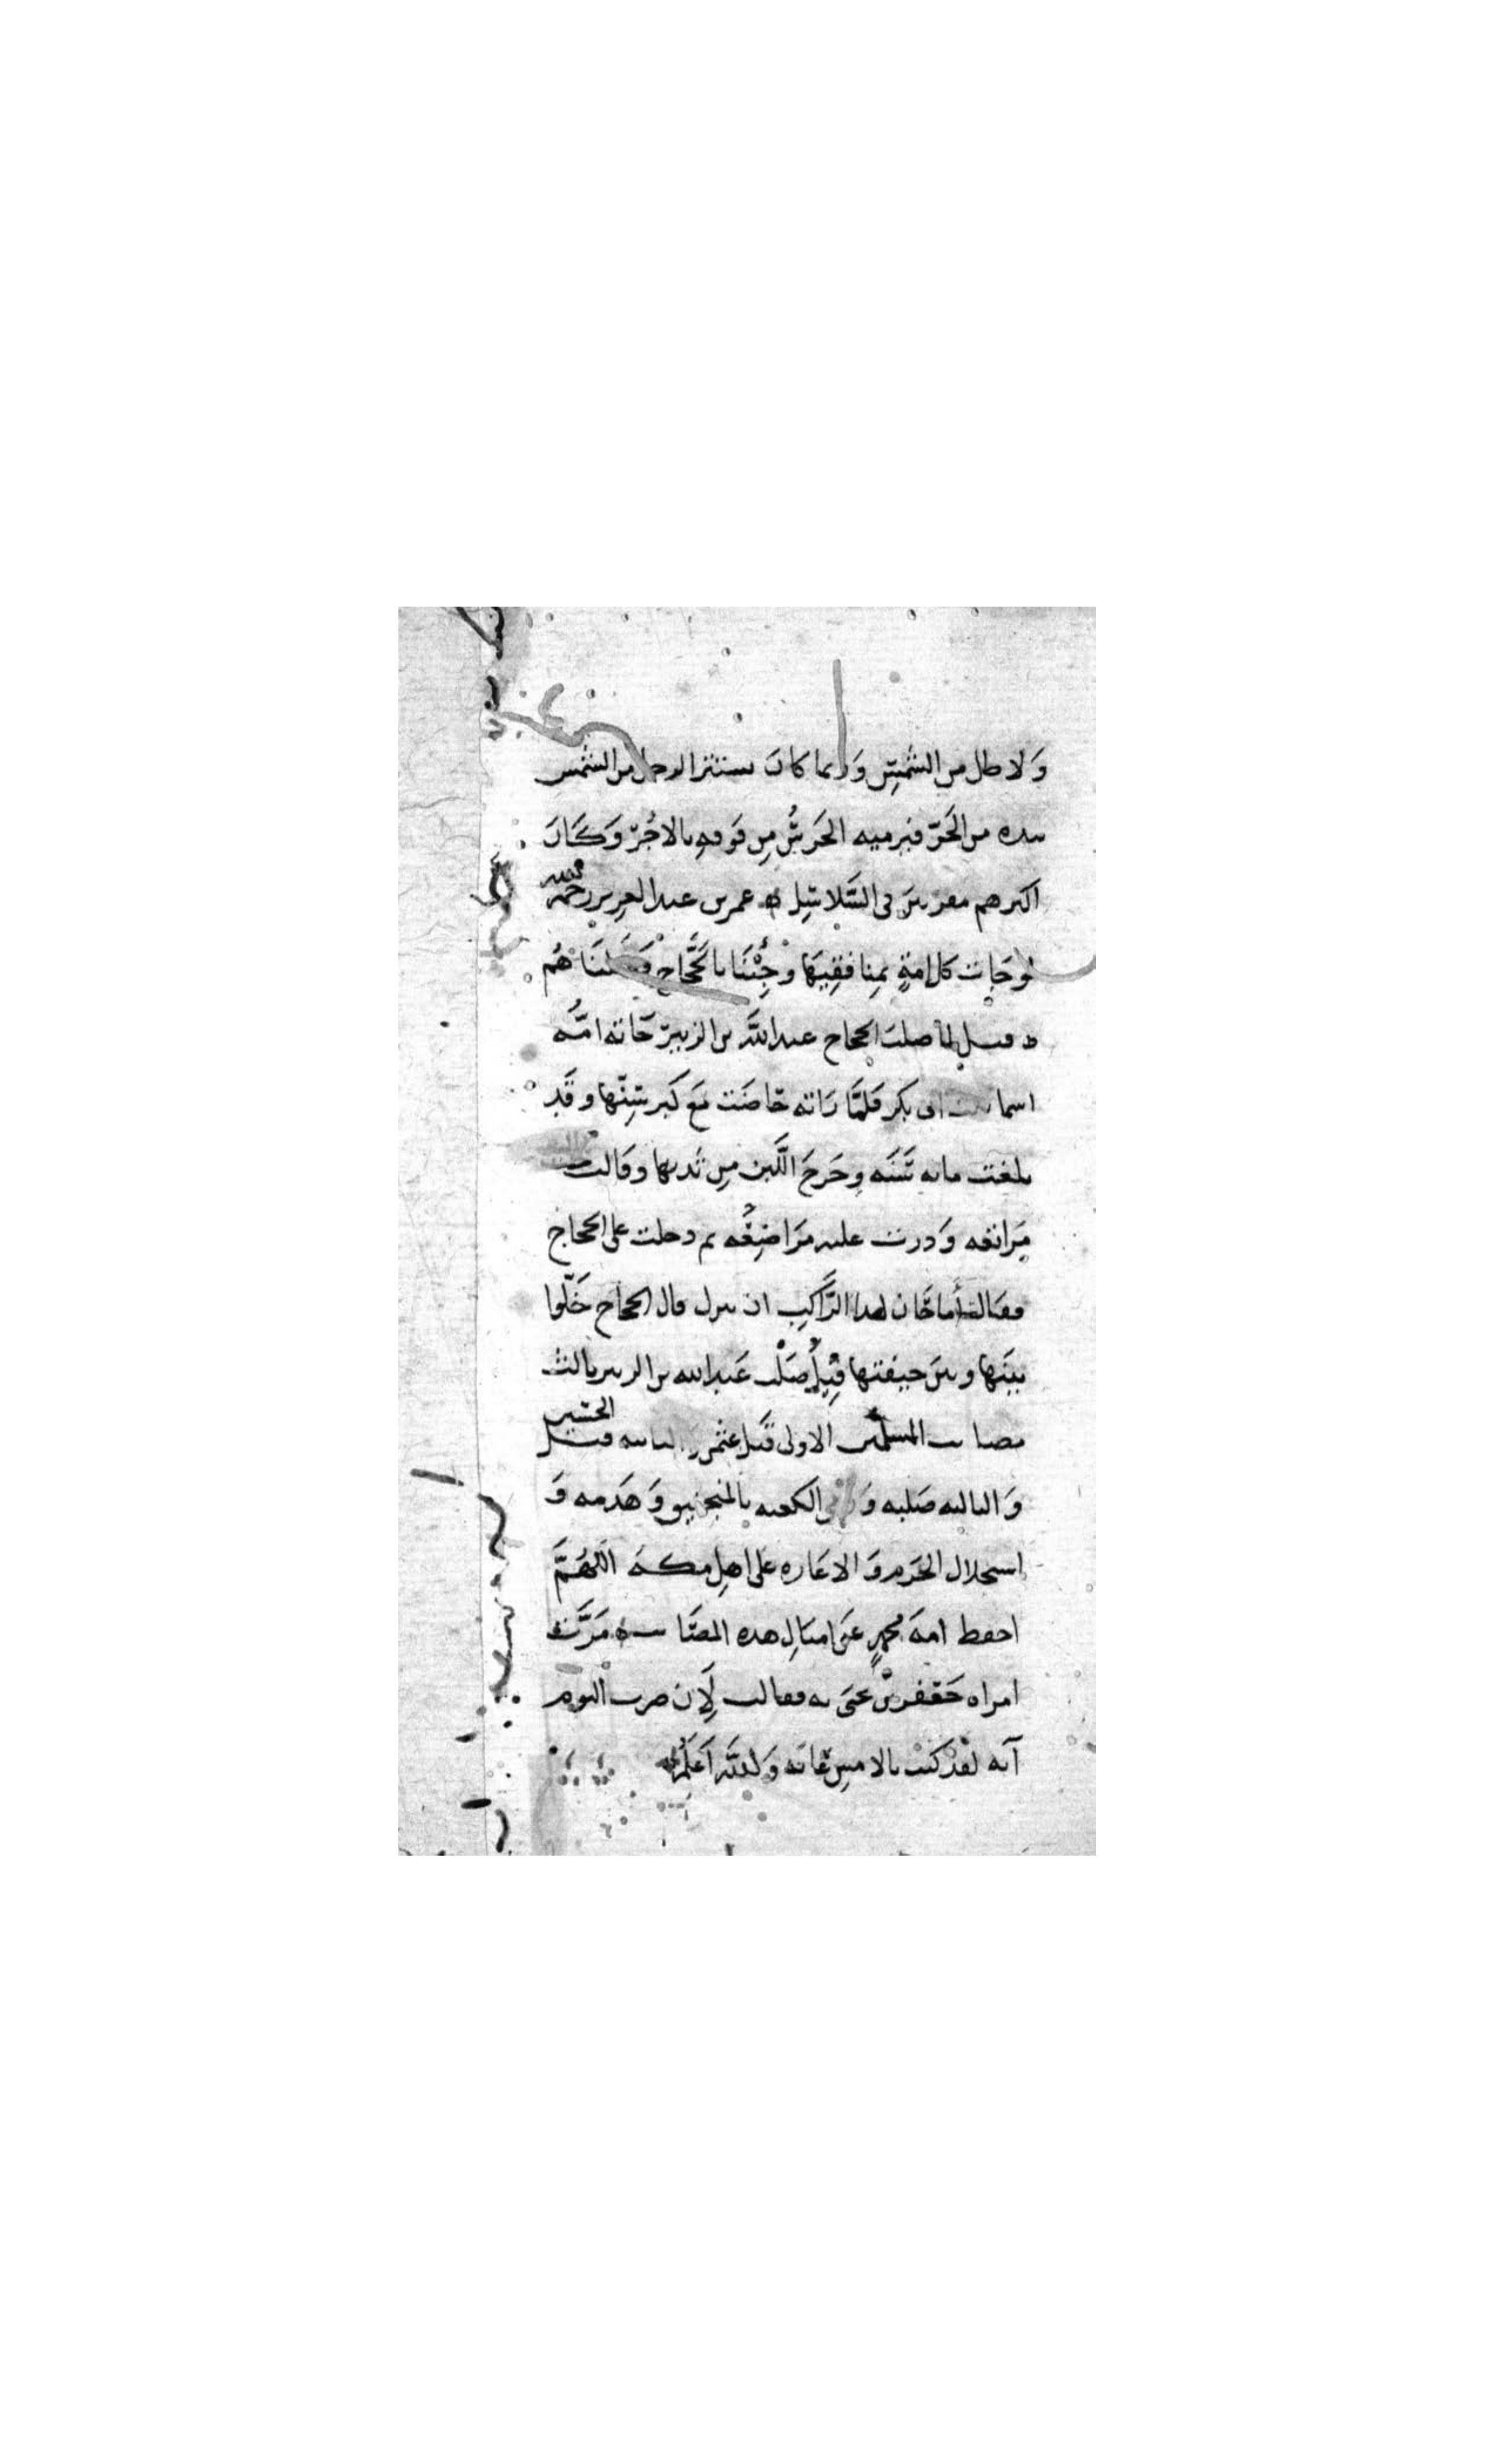 وَلا ظل من الشمسِ وَربما كانَ يستتر الرجل من الشمس
بيده من الحَرّ فيرميه الحَرسُ مِن فَوقهِ بالاجُرّ وَكَانَ
اكثرهم مقرنينَ في السَّلاسِل عمر بن عبد العزيز رحمه الله
لو جَاءت كل امةٍ بمنافقِيهَا وجِئْنَا بالحَجَّاج فَضَلنَاهُم
قيل لما صلبَ الحجاج عبد اللَّه بن الزبير جَاءته امُّه
اسما بنت ابى بكر فلمَّا رَاته حَاضَت مَع كَبر سِنّها وقَد
بلغت مايه سَنَه وخَرجَ اللَّبن مِن ثَديها وقالت
مَراتعه وَدرت عليه مَراضِعُه ثم دخلت على الحجاج
فقالت أما حَان لهذا الرَّاكِب ان ينزل قال الحجاج خَلّوا
بينَها وبينَ جيفتها قِيلَ صَلْب عَبد الله بن الزبير ثالث
مصايب المسلمين الاولى قتل عثمن والثانيه قتل الحسين
وَالثالثه صَلبه وَرمى الكعبه بالمنجنيق وَهَدمه وَ
استحلال الحَرم وَالاغَاره على اهل مكه اللهُمَّ
احفظ امه محمدٍ عَن امثالِ هذه المصَايب مَرَّت
امراه بجَعْفر بن يحيى به فقالت لَإن صرت اليوم
آيه لقَد كنت بالامسِ غَايَه وَاللَّه أعلم